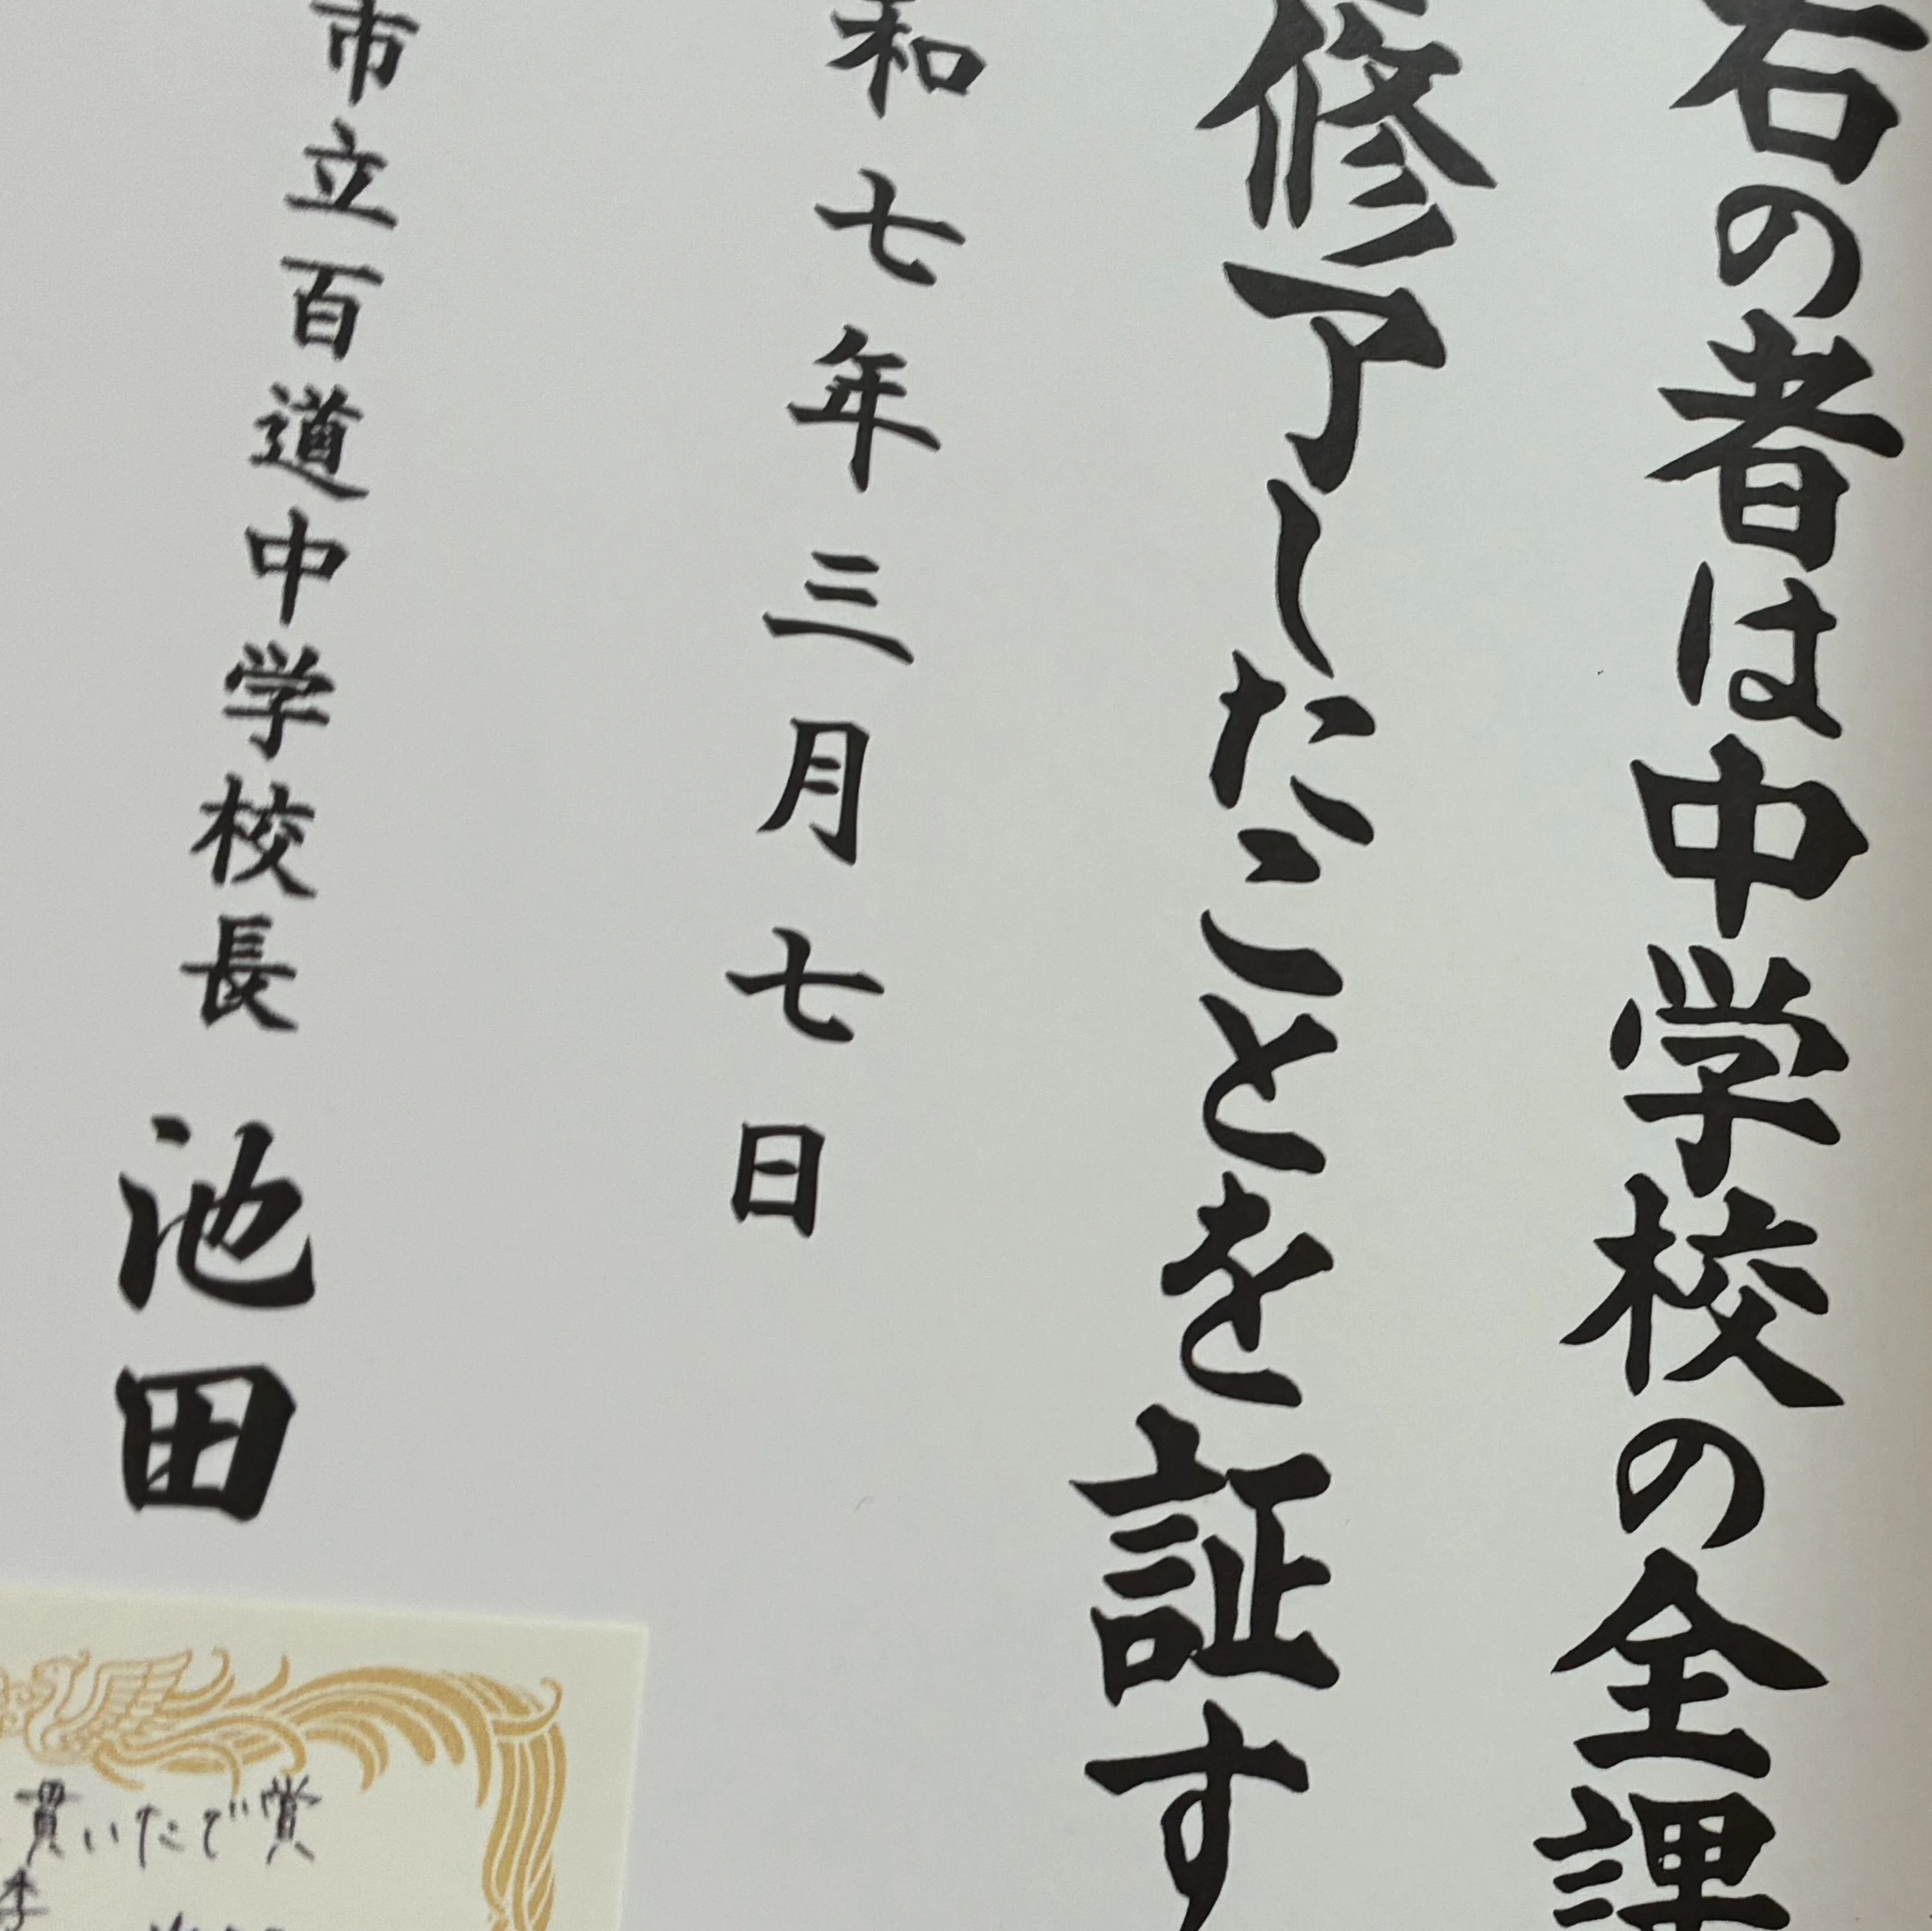 右の者は中学校の全課
修了したことを証す
和七年三月七日
市立百道中学校長 池田
貫いたで賞